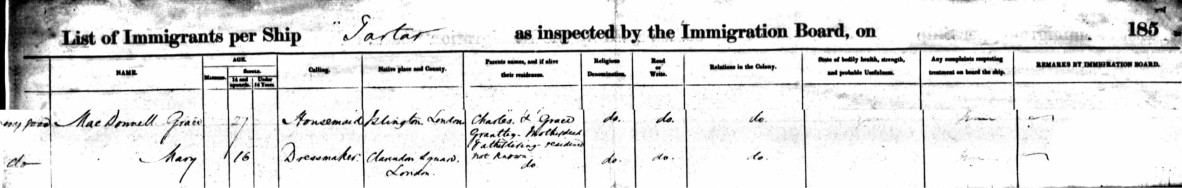 List of Immigrants per Ship "Tartar as inspected by the Immigration Board, on 185
NAME. AGE. Calling. Native place and County. Parents names, and if alive their residence. Religious Denomination. Read or Write. Relations in the Colony. State of bodily health, strength, and probable Usefulness. Any complaints respecting treatment on board the ship. REMARKS BY IMMIGRATION BOARD.
Married. Single.
14 and upwards. Under 14 Years.
good MacDonnell Grace Housemaid Islington London Charles & Grace do. do. do.
Grantley. Mother dead
Father living residence
do Mary 16 Dressmaker Clarendon Square. not known do. do. do. do.
London.